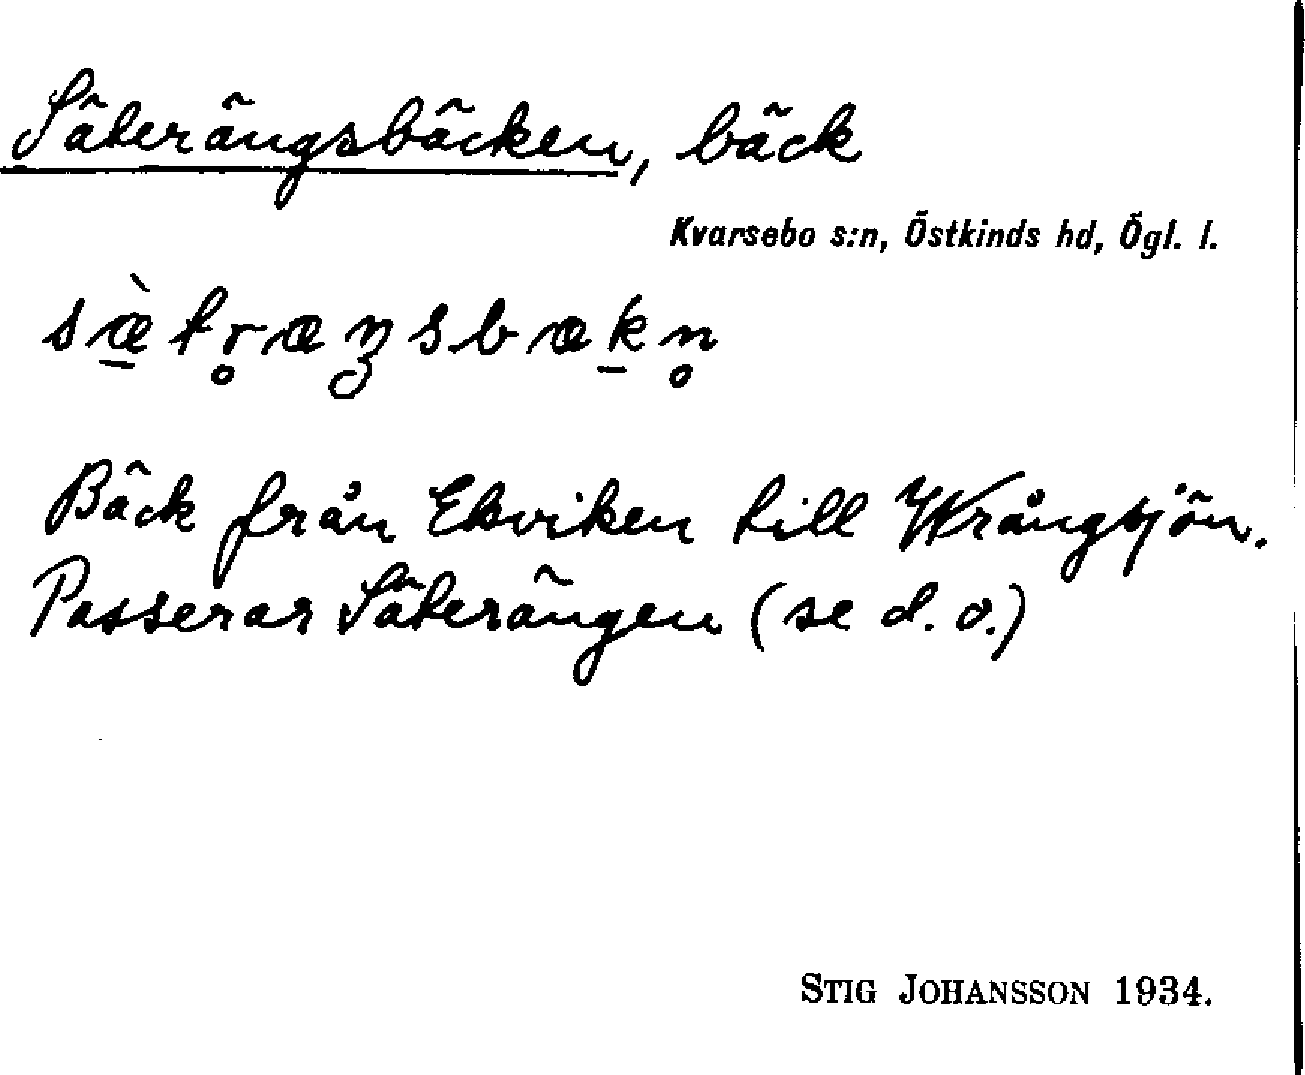 Säterängsbäcken, bäck
Kvarsebo s:n, Östkinds hd, Ögl. l.
sæ̠̀tr̥æŋsbæk̠n̥
Bäck från Ekviken till Wrångsjön.
Passerar Säterängen (se d. o.)
STIG JOHANSSON 1934.